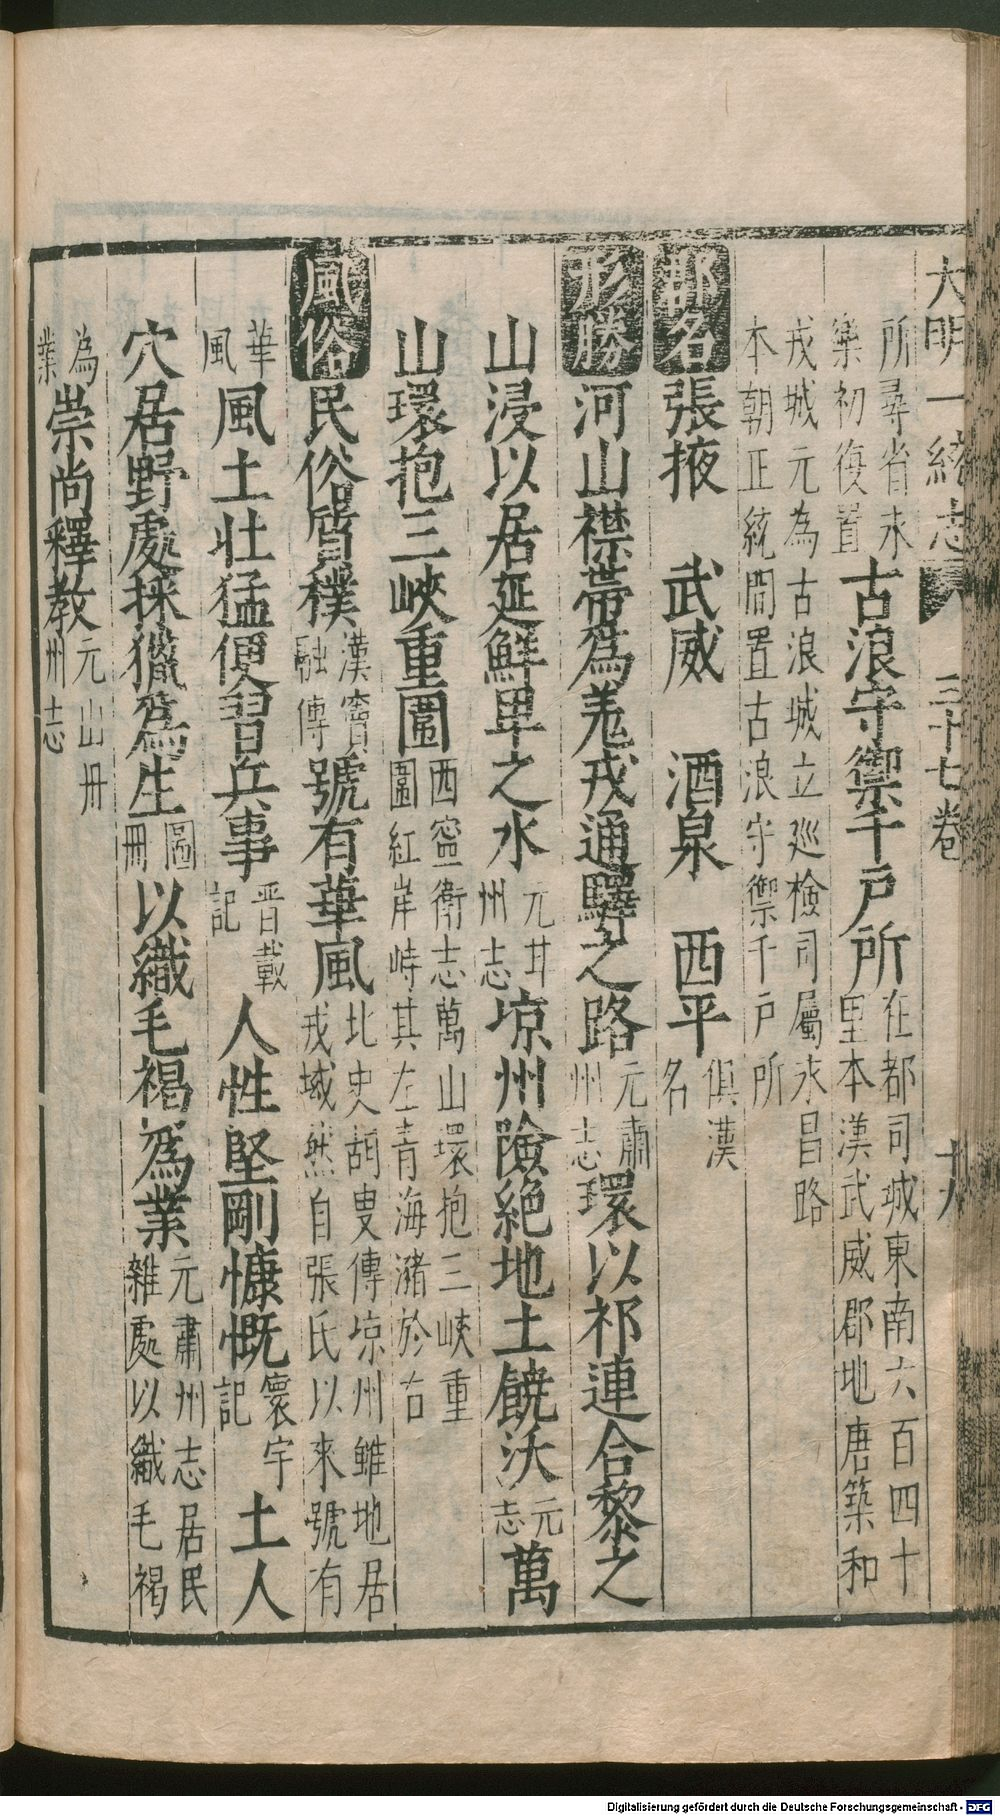 大明一統志 三十七卷 十九
所尋省永樂初復置 古浪守禦千戶所 在都司城東南六百四十里本漢武威郡地唐築和
戎城元為古浪城立廵檢司屬永昌路本朝正統間置古浪守禦千戶所
郡名 張掖 武威 酒泉 西平 俱漢名
形勝 河山襟帶爲羗戎通驛之路 元肅州志 環以祁連合黎之
山浸以居延鮮卑之水 元甘州志 凉州險絶地土饒沃 元志 萬
山環抱三峽重圍 西寧衛志萬山環抱三峽重圍紅岸峙其左青海瀦於右
風俗 民俗質樸 漢竇融傳 號有華風 北史胡叟傳凉州雖地居戎域然自張氏以來號有
華風 風土壮猛便習兵事 晋載記 人性堅剛慷慨 寰宇記 土人
穴居野處採獵爲生 圖冊 以織毛褐爲業 元肅州志居民雜處以織毛褐
為業 崇尚釋教 元山冊州志
Digitalisierung gefördert durch die Deutsche Forschungsgemeinschaft - DFG